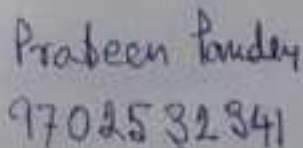 Prabeen Pandey
9702532341